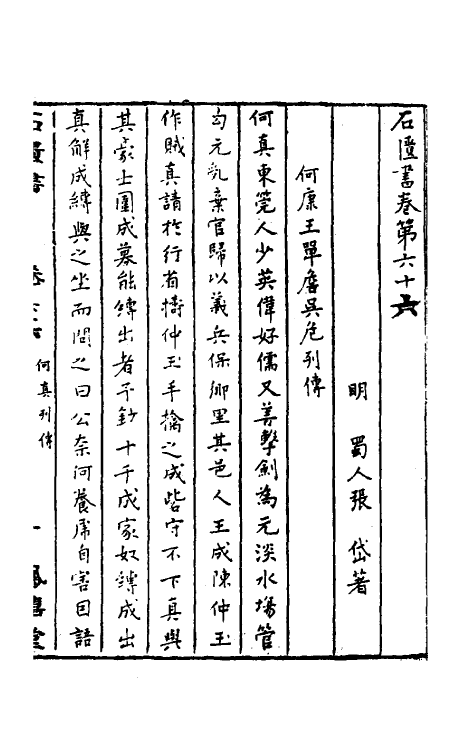 石匱書卷第六十六
明 蜀人張 岱著
何康王單詹吳危列傳
何真東筦人少英偉好儒又善擊劍為元淡水場管
勾元亂棄官歸以義兵保鄉里其邑人王成陳仲玉
作賊真請於行省擣仲玉手擒之成砦守不下真與
其豪士圍成募能縳出者予鈔十千成家奴縳成出
真解成縳與之坐而問之曰公奈何養虎自害因語
石匱書 卷六十六 何真列傳 一 鳳嬉堂